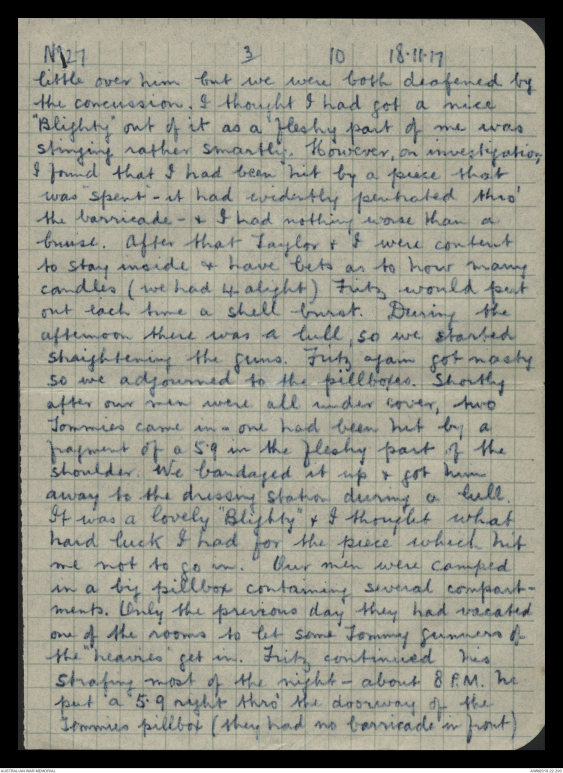 No 27 3 10 18.11.17
little over him but we were both deafened by
the concussion. I thought I had got a nice
"Blighty" out of it as a fleshy part of me was
stinging rather smartly. However, on investigation,
I found that I had been hit by a piece that
was "spent" - it had evidently pentrated thro'
the barricade - & I had nothing worse than a
bruise. After that Taylor & I were content
to stay inside & have bets as to how many
candles (we had 4 alight) Fritz would put
out each time a shell burst. During the
afternoon there was a lull, so we started
straightening the guns. Fritz again got nasty
so we adjourned to the pillboxes. Shortly
after our men were all under cover, two
Tommies came in - one had been hit by a
fragment of a 5.9 in the fleshy part of the
shoulder. We bandaged it up & got him
away to the dressing station during a lull.
It was a lovely "Blighty" & I thought what
hard luck I had for the piece which hit
me not to go in. Our men were camped
in a big pillbox containing several compart-
ments. Only the previous day they had vacated
one of the rooms to let some Tommy gunners of
the "heavies" get in. Fritz continued his
strafing most of the night - about 8 P.M. he
put a 5.9 right thro' the doorway of the
Tommies pillbox (they had no barricade in front)
AUSTRALIAN WAR MEMORIAL